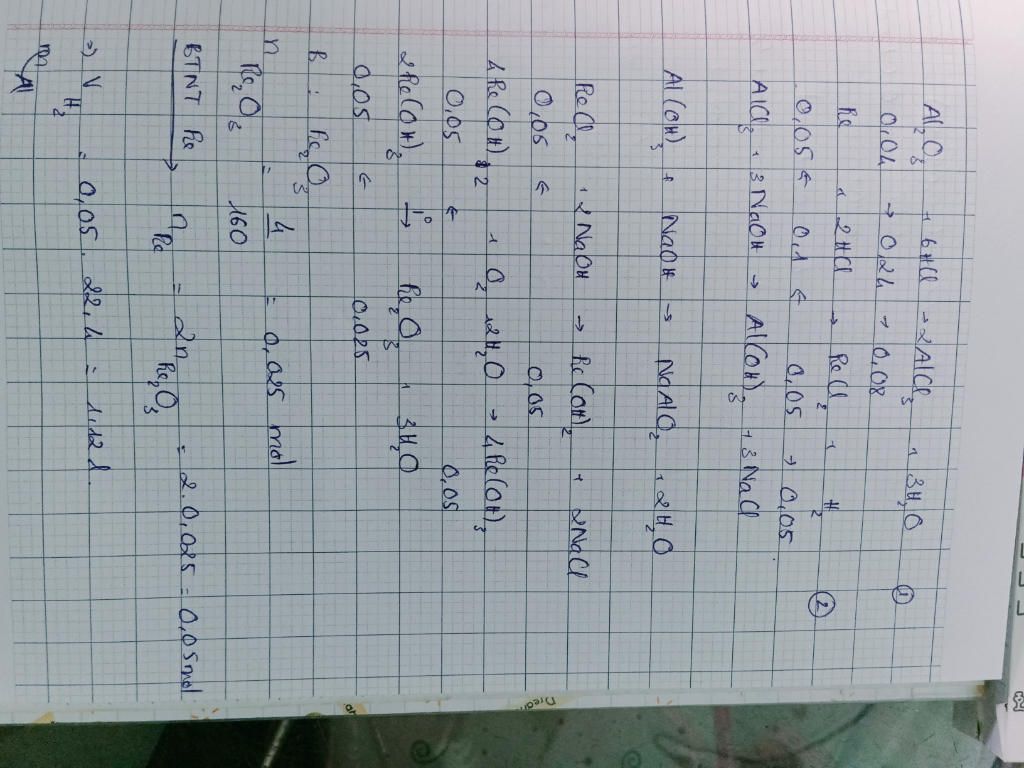 Al2O3 + 6HCl → 2AlCl3 + 3H2O ①
0,04 → 0,24 → 0,08
Fe + 2HCl → FeCl2 + H2 ②
0,05 ← 0,1 ← 0,05 → 0,05
AlCl3 + 3NaOH → Al(OH)3 + 3NaCl
Al(OH)3 + NaOH → NaAlO2 + 2H2O
FeCl2 + 2NaOH → Fe(OH)2 + 2NaCl
0,05 ← 0,05
4Fe(OH)2 + O2 + 2H2O → 4Fe(OH)3
0,05 ← 0,05
2Fe(OH)3 t° → Fe2O3 + 3H2O
0,05 ← 0,025
B : Fe2O3
n Fe2O3 = 4/160 = 0,025 mol
BTNT Fe → n Fe = 2n Fe2O3 = 2.0,025 = 0,05 mol
=> V H2 = 0,05. 22,4 = 1,12 l.
m Al
Dream